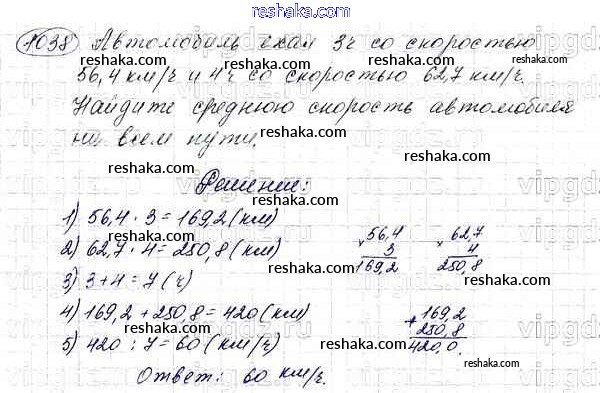 reshaka.com
1038 Автомобиль ехал 3ч со скоростью
56,4 км/ч и 4ч со скоростью 62,7 км/ч.
reshaka.com
Найдите среднюю скорость автомобиля
reshaka.com
на всем пути.
reshaka.com reshaka.com
Решение:
1) 56,4 · 3 = 169,2 (км)
2) 62,7 · 4 = 250,8 (км)
56,4
× 3
169,2
62,7
× 4
250,8
reshaka.com reshaka.com
3) 3 + 4 = 7 (ч)
4) 169,2 + 250,8 = 420 (км)
169,2
+ 250,8
420,0.
reshaka.com
5) 420 : 7 = 60 (км/ч)
reshaka.com reshaka.com
Ответ: 60 км/ч.
reshaka.com